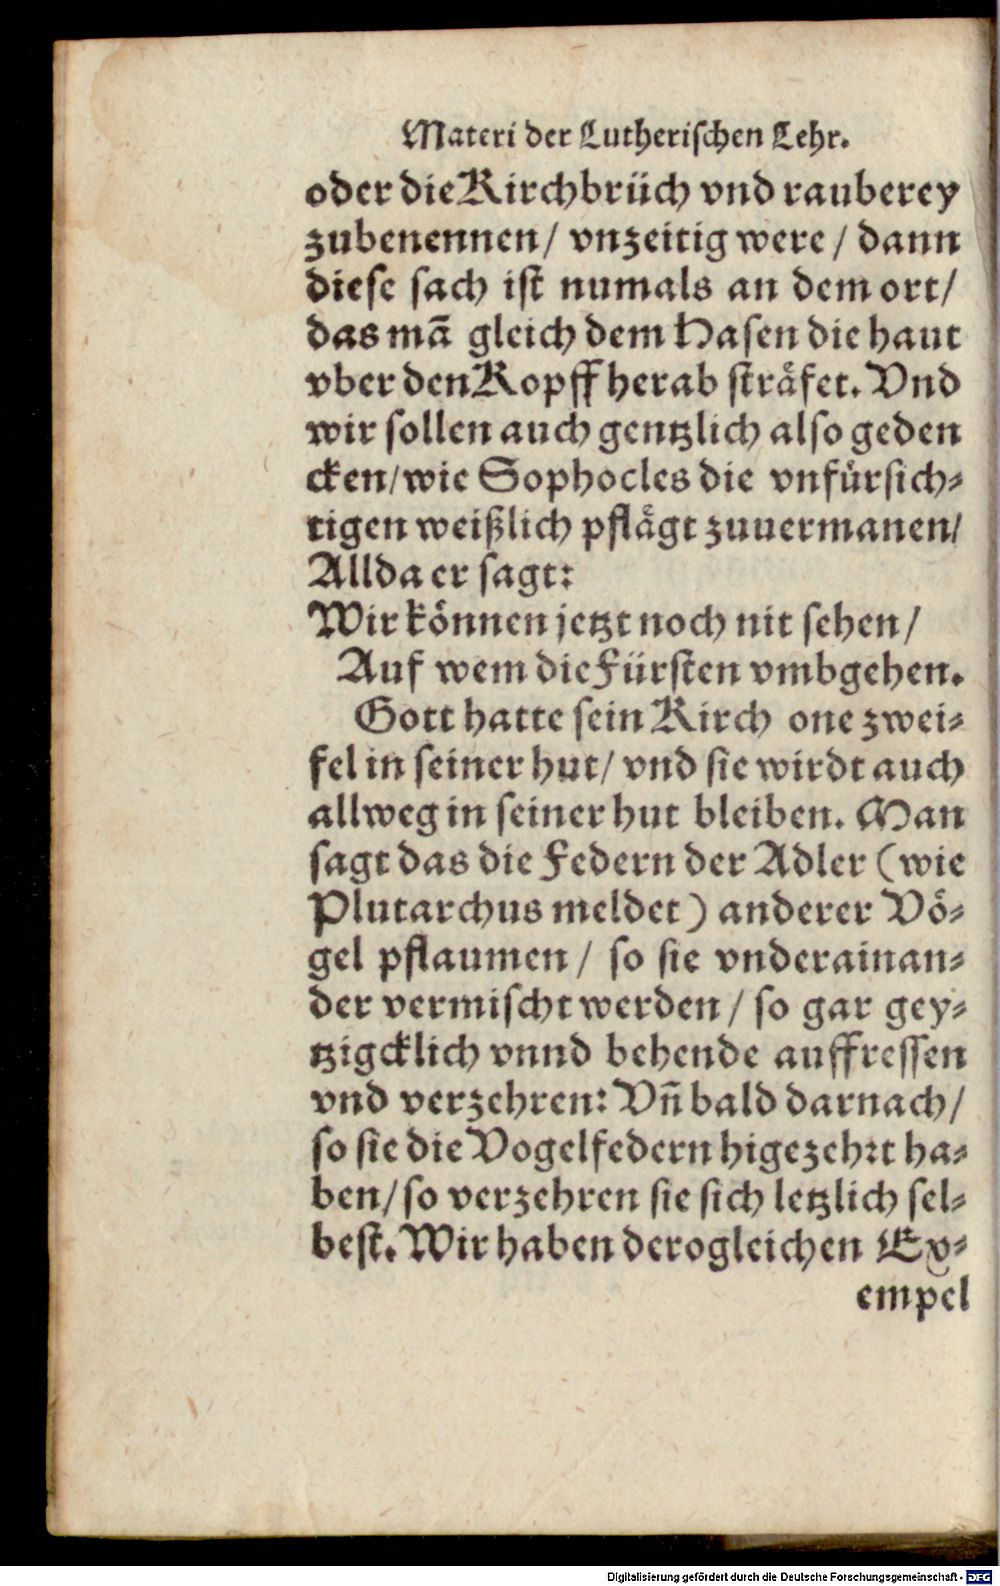 Materi der Lutherischen Lehr.
oder die Kirchbrüch vnd rauberey
zubenennen/ vnzeitig were/ dann
diese sach ist numals an dem ort/
das mã gleich dem Hasen die haut
vber den Kopff herab sträfet. Vnd
wir sollen auch gentzlich also geden
cken/ wie Sophocles die vnfürsich-
tigen weißlich pflägt zuuermanen/
Allda er sagt:
Wir können jetzt noch nit sehen/
Auf wem die Fürsten vmbgehen.
Gott hatte sein Kirch one zwei-
fel in seiner hut/ vnd sie wirdt auch
allweg in seiner hut bleiben. Man
sagt das die Federn der Adler (wie
Plutarchus meldet) anderer Vö-
gel pflaumen/ so sie vnderainan-
der vermischt werden/ so gar gey-
tzigcklich vnnd behende auffressen
vnd verzehren: Vñ bald darnach/
so sie die Vogelfedern higezehrt ha-
ben/ so verzehren sie sich letzlich sel-
best. Wir haben derogleichen Ex-
empel
Digitalisierung gefördert durch die Deutsche Forschungsgemeinschaft - DFG